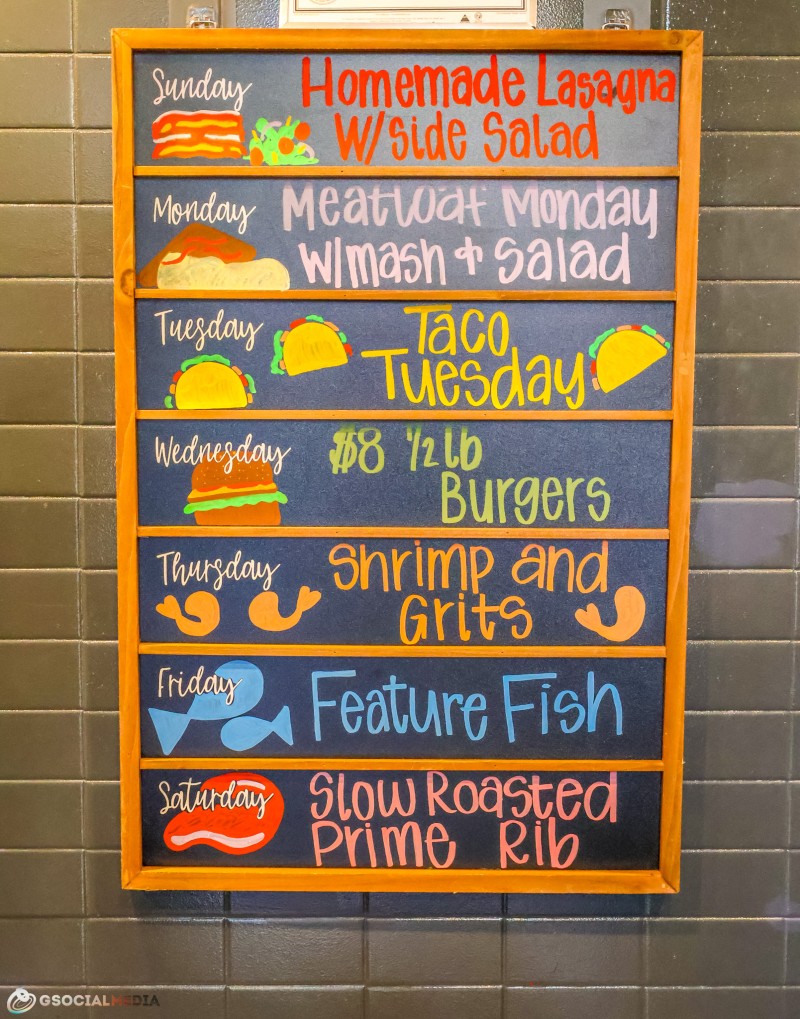 Sunday
Homemade Lasagna
W/side Salad
Monday
Meatloaf Monday
W/mash + Salad
Tuesday
Taco
Tuesday
Wednesday
$8 1/2 lb
Burgers
Thursday
Shrimp and
Grits
Friday
Feature Fish
Saturday
Slow Roasted
Prime Rib
GSOCIALMEDIA